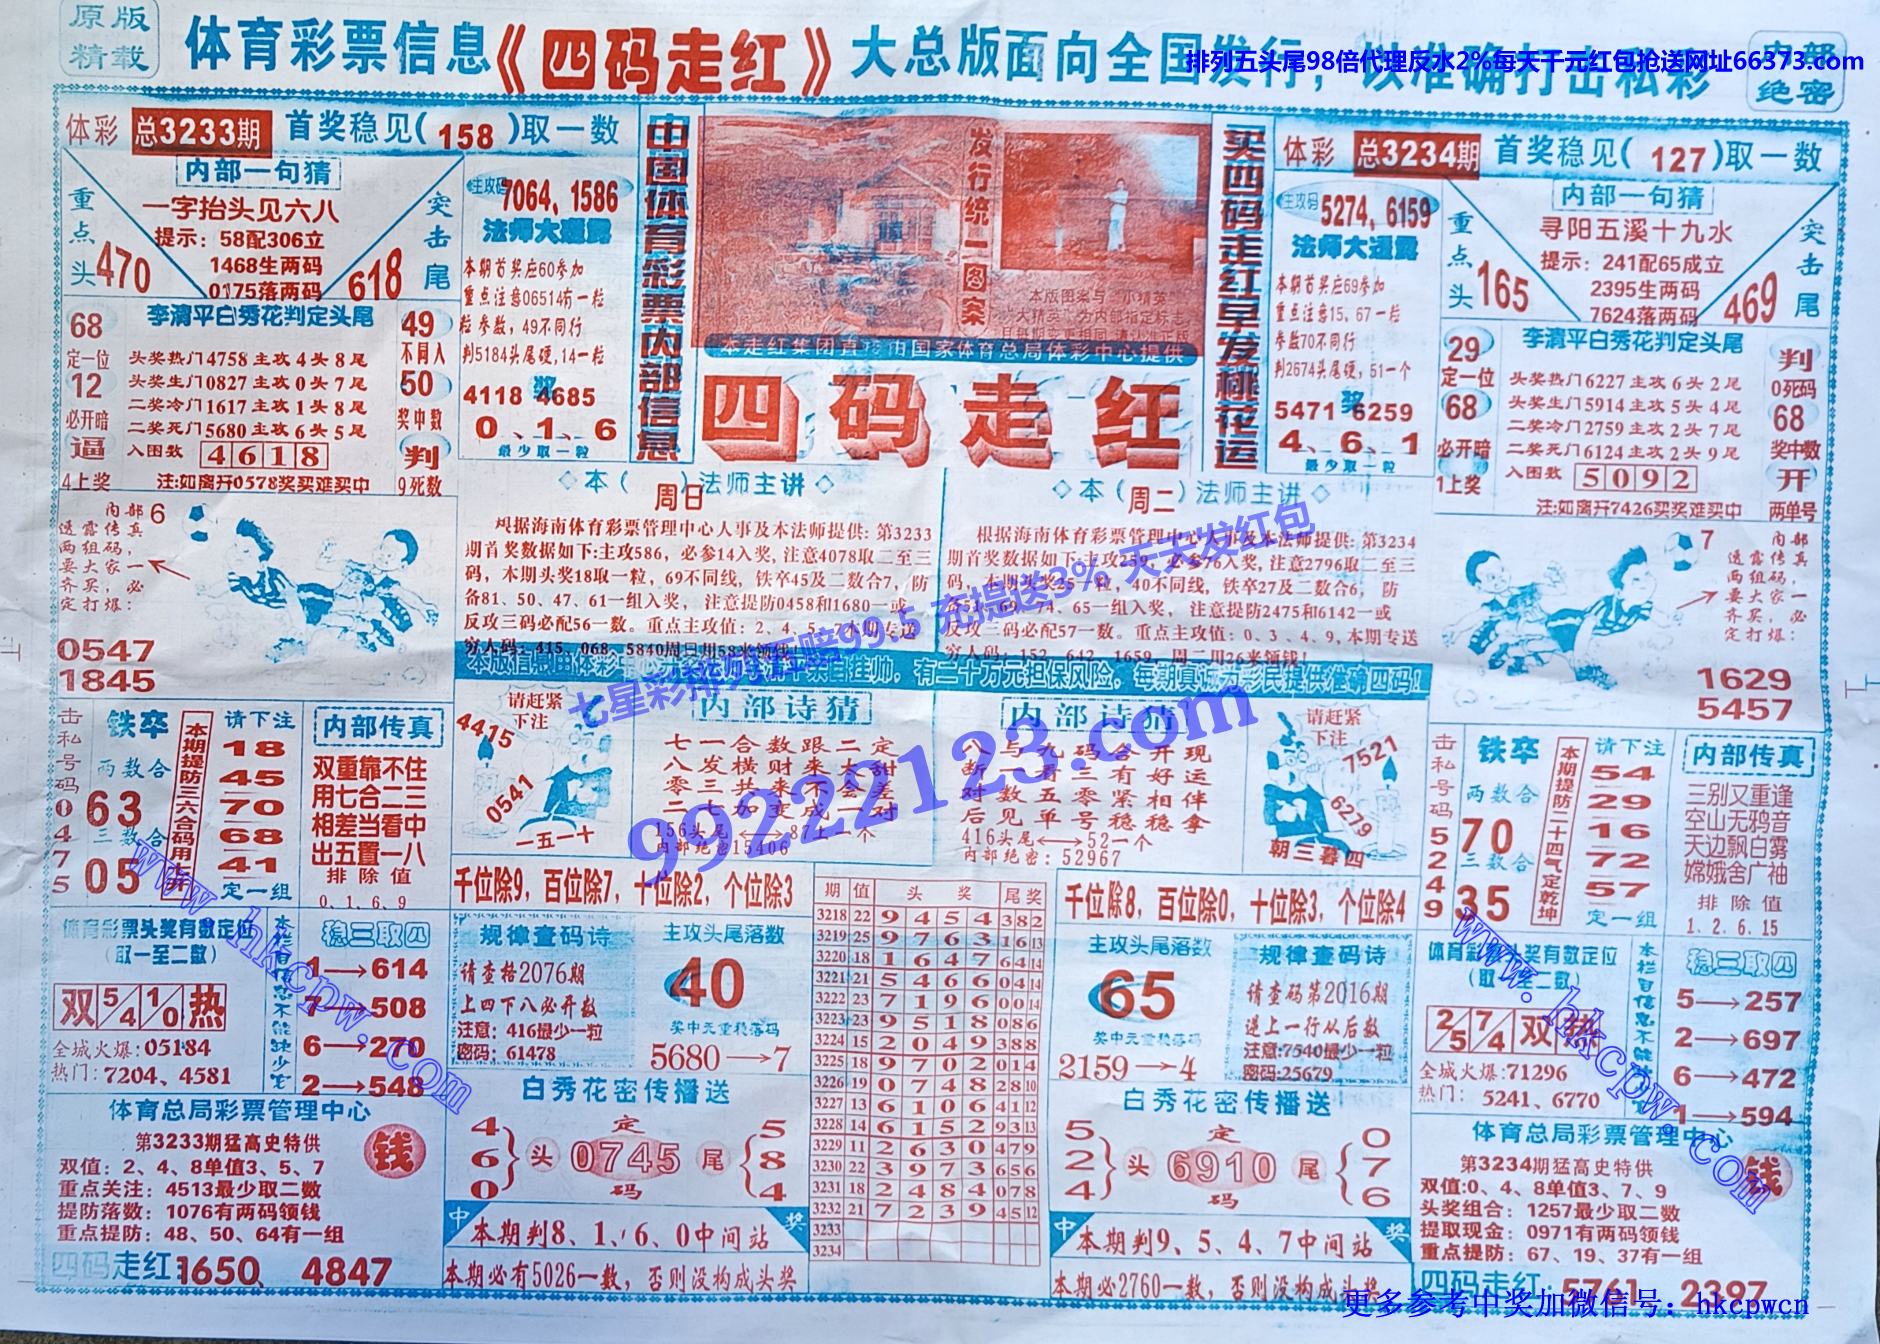 原版
精载
体育彩票信息《四码走红》大总版面向全国发行，以准确打击私彩
内部
绝密
排列五头尾98倍代理反水2%每天千元红包抢送网址66373.com
体彩 总3233期 首奖稳见(158)取一数
内部一句猜
一字抬头见六八
提示：58配306立
1468生两码
0175落两码
重点头 470
突击尾 618
主攻码 7064、1586
法师大透露
本期首奖应60参加
重点注意06514有一粒
粒参数，49不同行
判5184头尾硬，14一粒
奖
4118 4685
0、1、6
最少取一粒
李清平白秀花判定头尾
68
定一位
12
必开暗
逼
4上奖
头奖热门4758主攻4头8尾
头奖生门0827主攻0头7尾
二奖冷门1617主攻1头8尾
二奖死门5680主攻6头5尾
入围数 4618
注:如离开0578奖买难买中
49
不同入
50
奖中数
判
9死数
中国体育彩票内部信息
发行统一图案
本走红集团直接由国家体育总局体彩中心提供
四码走红
买四码走红早发桃花运
体彩 总3234期 首奖稳见(127)取一数
内部一句猜
寻阳五溪十九水
提示：241配65成立
2395生两码
7624落两码
重点头 165
突击尾 469
主攻码 5274、6159
法师大透露
本期首奖应69参加
重点注意15、67一粒
参数70不同行
判2674头尾硬，51一个
奖
5471 6259
4、6、1
最少取一粒
李清平白秀花判定头尾
29
定一位
68
必开暗
1上奖
头奖热门6227主攻6头2尾
头奖生门5914主攻5头4尾
二奖冷门2759主攻2头7尾
二奖死门6124主攻2头9尾
入围数 5092
注:如离开7426买奖难买中
判
0死码
68
奖中数
开
两单号
内部6
透露传真
两组码，
要大家一
齐买，必
定打爆：
0547
1845
◇本(周日)法师主讲◇
根据海南体育彩票管理中心人事及本法师提供：第3233
期首奖数据如下:主攻586，必参14入奖，注意4078取二至三
码，本期头奖18取一粒，69不同线，铁卒45及二数合7，防
备81、50、47、61一组入奖，注意提防0458和1680一或
反攻三码必配56一数。重点主攻值：2、4、5、7本期专送
穷人码：415、068、5840周日用58来领钱！
◇本(周二)法师主讲◇
根据海南体育彩票管理中心人事及本法师提供：第3234
期首奖数据如下:主攻259，必参76入奖，注意2796取二至三
码，本期头奖25一粒，40不同线，铁卒27及二数合6，防
备51、69、74、65一组入奖，注意提防2475和6142一或
反攻三码必配57一数。重点主攻值：0、3、4、9,本期专送
穷人码：152、642、1659，周二用26来领钱！
7内部
透露传真
两组码，
要大家一
齐买，必
定打爆：
1629
5457
有二十万元担保风险，每期真诚为彩民提供准确四码！
七星彩排列五赔99.5 充提送3% 天天发红包
99222123.com
击私号码 0475
铁卒
两数合
63
三数合
05
本期提防三六合码用七开
请下注
18
45
70
68
41
定一组
内部传真
双重靠不住
用七合二三
相差当看中
出五置一八
排除值
0、1、6、9
请赶紧
下注
4415
0541
一五一十
内部诗猜
七一合数跟二定
八发横财来太甜
零三共来不会差
二七加变成一对
156头尾←→87上一个
内部绝密15406
内部诗猜
八与九码合开现
断一看三有好运
对数五零紧相伴
后见单号稳稳拿
416头尾←→52一个
内部绝密：52967
请赶紧
下注
7521
6279
朝三暮四
击私号码 5249
铁卒
两数合
70
三数合
35
本期提防二十四气定乾坤
请下注
54
29
16
72
57
定一组
内部传真
三别又重逢
空山无鸦音
天边飘白雾
嫦娥舍广袖
排除值
1、2、6、15
千位除9，百位除7，十位除2，个位除3
千位除8，百位除0，十位除3，个位除4
体育彩票头奖有数定位
(取一至二数)
双 5/4 1/0 热
全城火爆:05184
热门:7204、4581
本栏目信息不能缺少它
稳三取四
1→614
7→508
6→270
2→548
规律查码诗
请查格2076期
上四下八必开数
注意：416最少一粒
密码：61478
主攻头尾落数
40
奖中元重稳落码
5680→7
期 值 头奖 尾奖
3218 22 9454 38 2
3219 25 9763 16 13
3220 18 1647 64 14
3221 21 5466 04 14
3222 23 7196 00 14
3223 23 9518 08 6
3224 15 2049 38 8
3225 18 9702 01 4
3226 19 0748 28 10
3227 13 6106 41 12
3228 14 6152 93 13
3229 11 2630 47 9
3230 22 3973 65 6
3231 18 2484 07 8
3232 21 7239 45 12
3233
3234
主攻头尾落数
65
奖中元重稳落码
2159→4
规律查码诗
请查码第2016期
逆上一行从后数
注意:7540最少一粒
密码:25679
体育彩票头奖有数定位
(取一至二数)
2/5 7/4 双热
全城火爆:71296
热门：5241、6770
稳三取四
5→257
2→697
6→472
1→594
体育总局彩票管理中心
第3233期猛高史特供
双值：2、4、8单值3、5、7
重点关注：4513最少取二数
提防落数：1076有两码领钱
重点提防：48、50、64有一组
钱
四码走红:1650、4847
白秀花密传播送
4
6
0
头 定 0745 码 尾
5
8
4
中 本期判8、1、6、0中间站 奖
本期必有5026一数，否则没构成头奖
白秀花密传播送
5
2
4
头 定 6910 码 尾
0
7
6
中 本期判9、5、4、7中间站 奖
本期必2760一数，否则没构成头奖
体育总局彩票管理中心
第3234期猛高史特供
双值:0、4、8单值3、7、9
头奖组合：1257最少取二数
提取现金：0971有两码领钱
重点提防：67、19、37有一组
钱
四码走红：5761 2397
www.hkcpw.com
www.hkcpw.com
更多参考中奖加微信号：hkcpwcn